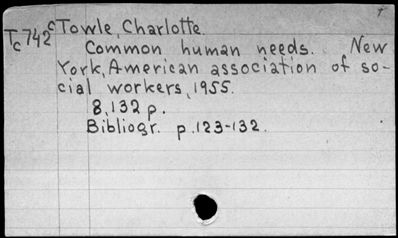 Tc742
cTowle, Charlotte.
Common human needs. New
York, American association of so-
cial workers, 1955.
8, 132 p.
Bibliogr. p.123-132.